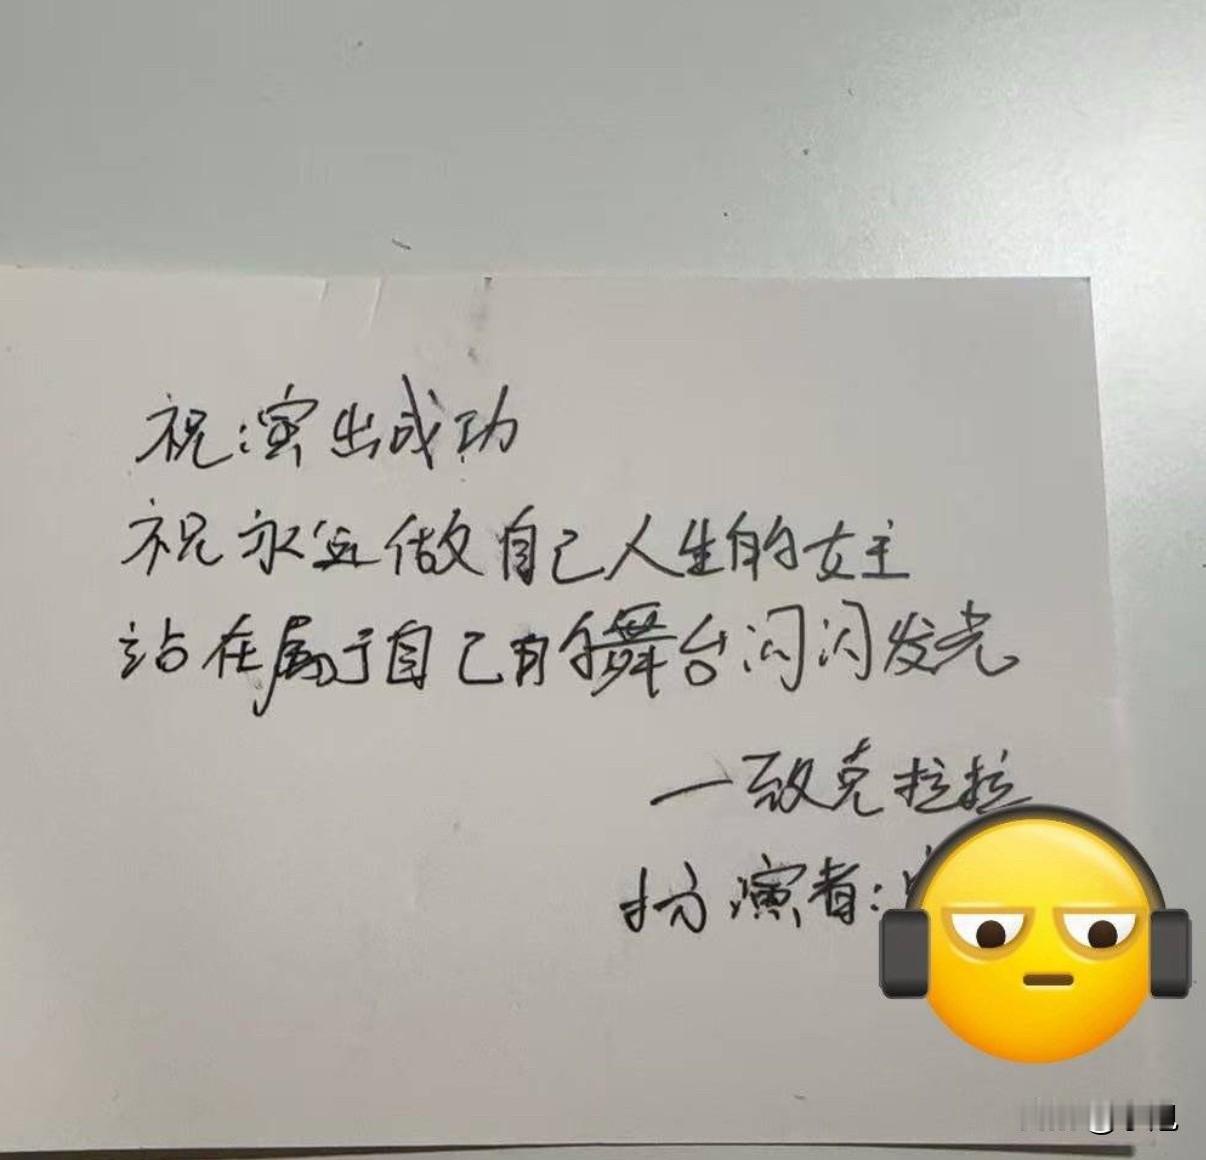 祝:演出成功
祝永远做自己人生的女主
站在属于自己的舞台闪闪发光
一致克拉拉
扮演者: